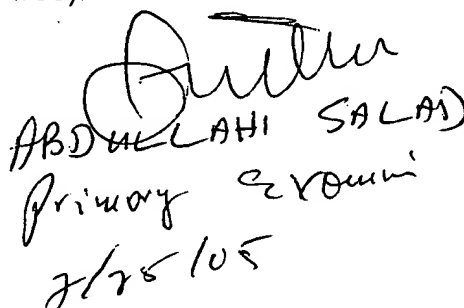 ABDULLAHI SALAD
Primary Examini
7/25/05